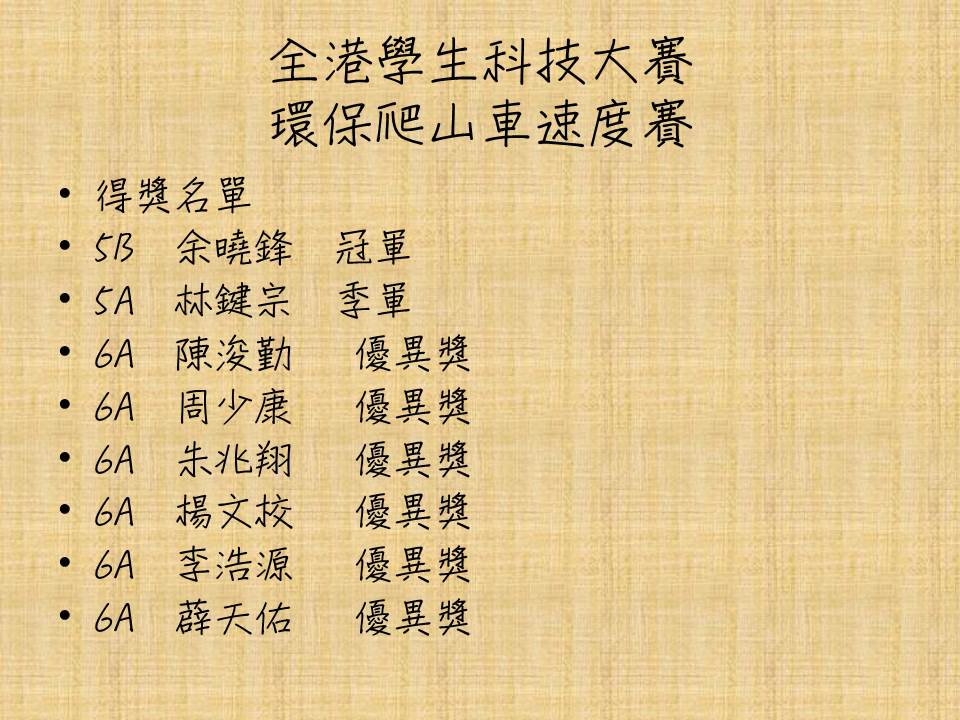 全港學生科技大賽
環保爬山車速度賽
• 得獎名單
• 5B 余曉鋒 冠軍
• 5A 林鍵宗 季軍
• 6A 陳浚勤 優異獎
• 6A 周少康 優異獎
• 6A 朱兆翔 優異獎
• 6A 楊文校 優異獎
• 6A 李浩源 優異獎
• 6A 薜天佑 優異獎